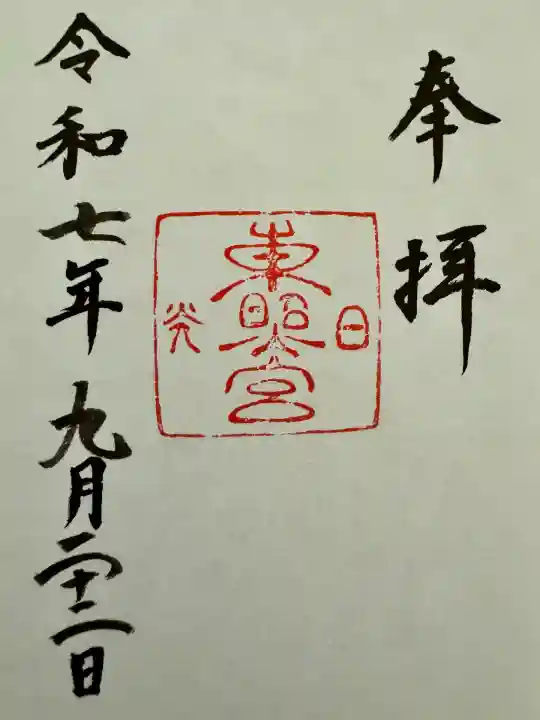 奉拝
日光
東照宮
令和七年九月二十二日